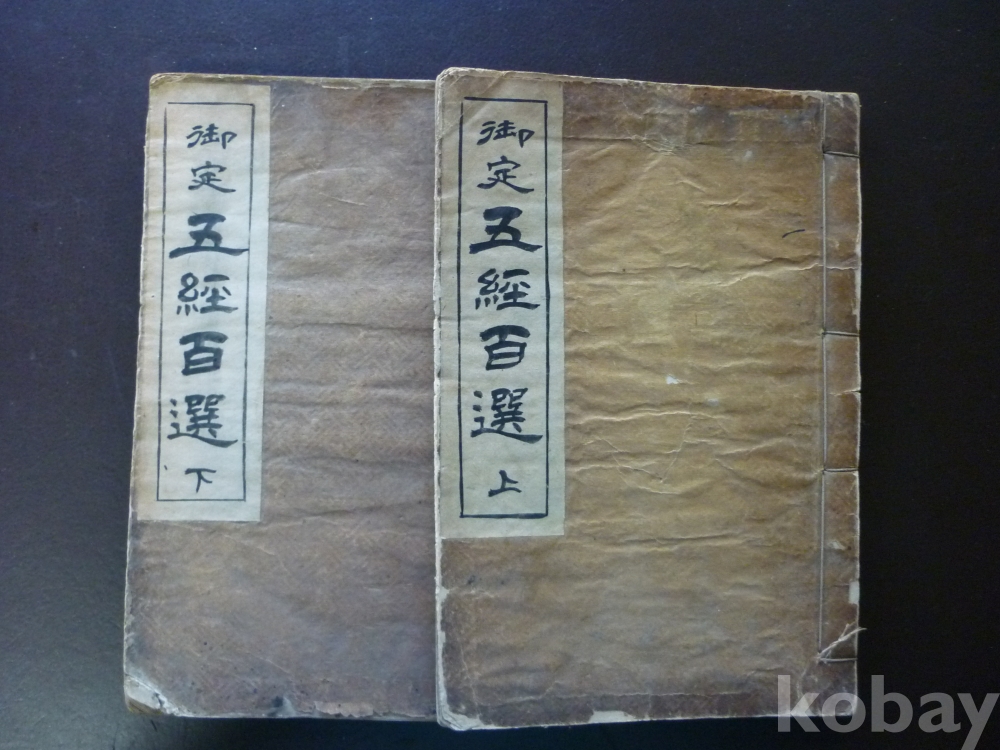 御定五經百選上
御定五經百選下
kobay